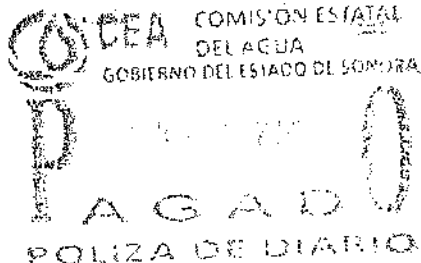 CEA COMISIÓN ESTATAL
DEL AGUA
GOBIERNO DEL ESTADO DE SONORA
PAGADO
POLIZA DE DIARIO